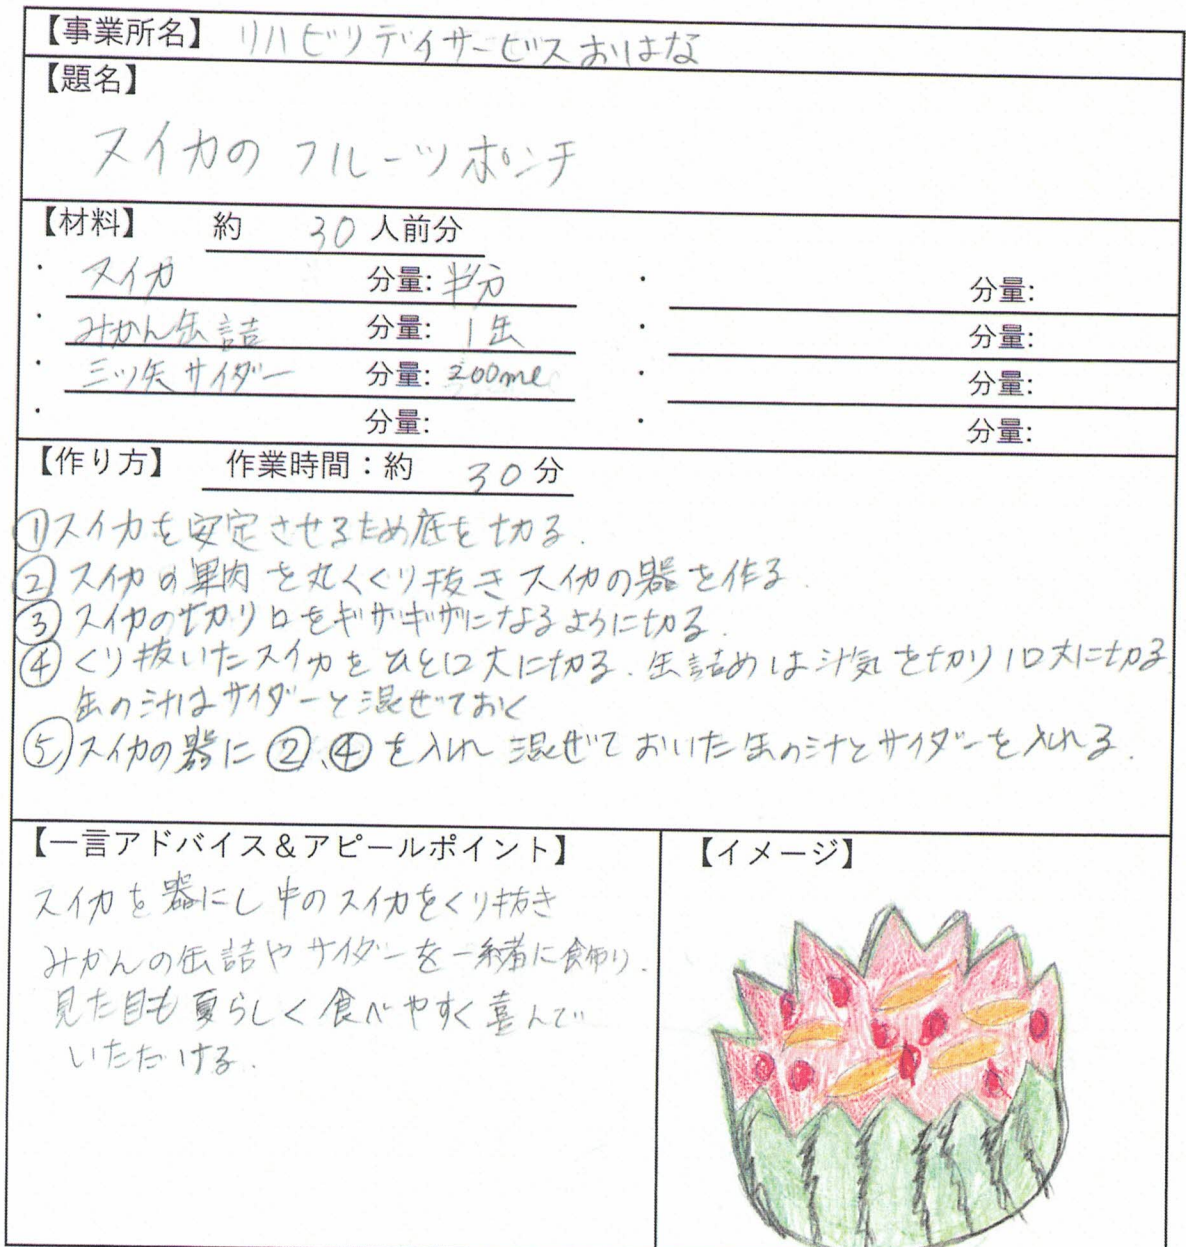 【事業所名】 リハビリデイサービスおはな
【題名】
スイカの フルーツポンチ
【材料】 約 30 人前分
・ スイカ 分量: 半分 ・ 分量:
・ みかん缶詰 分量: 1缶 ・ 分量:
・ 三ツ矢サイダー 分量: 200ml ・ 分量:
・ 分量: ・ 分量:
【作り方】 作業時間：約 30 分
①スイカを安定させるため底を切る.
②スイカの果肉を丸くくり抜きスイカの器を作る.
③スイカの切り口をギザギザになるように切る.
④くり抜いたスイカをひと口大に切る. 缶詰めは汁気を切り1口大に切る
缶の汁はサイダーと混ぜておく
⑤スイカの器に②、④を入れ混ぜておいた缶の汁とサイダーを入れる.
【一言アドバイス＆アピールポイント】
スイカを器にし中のスイカをくり抜き
みかんの缶詰やサイダーを一緒に飾り.
見た目も夏らしく食べやすく喜んで
いただける.
【イメージ】